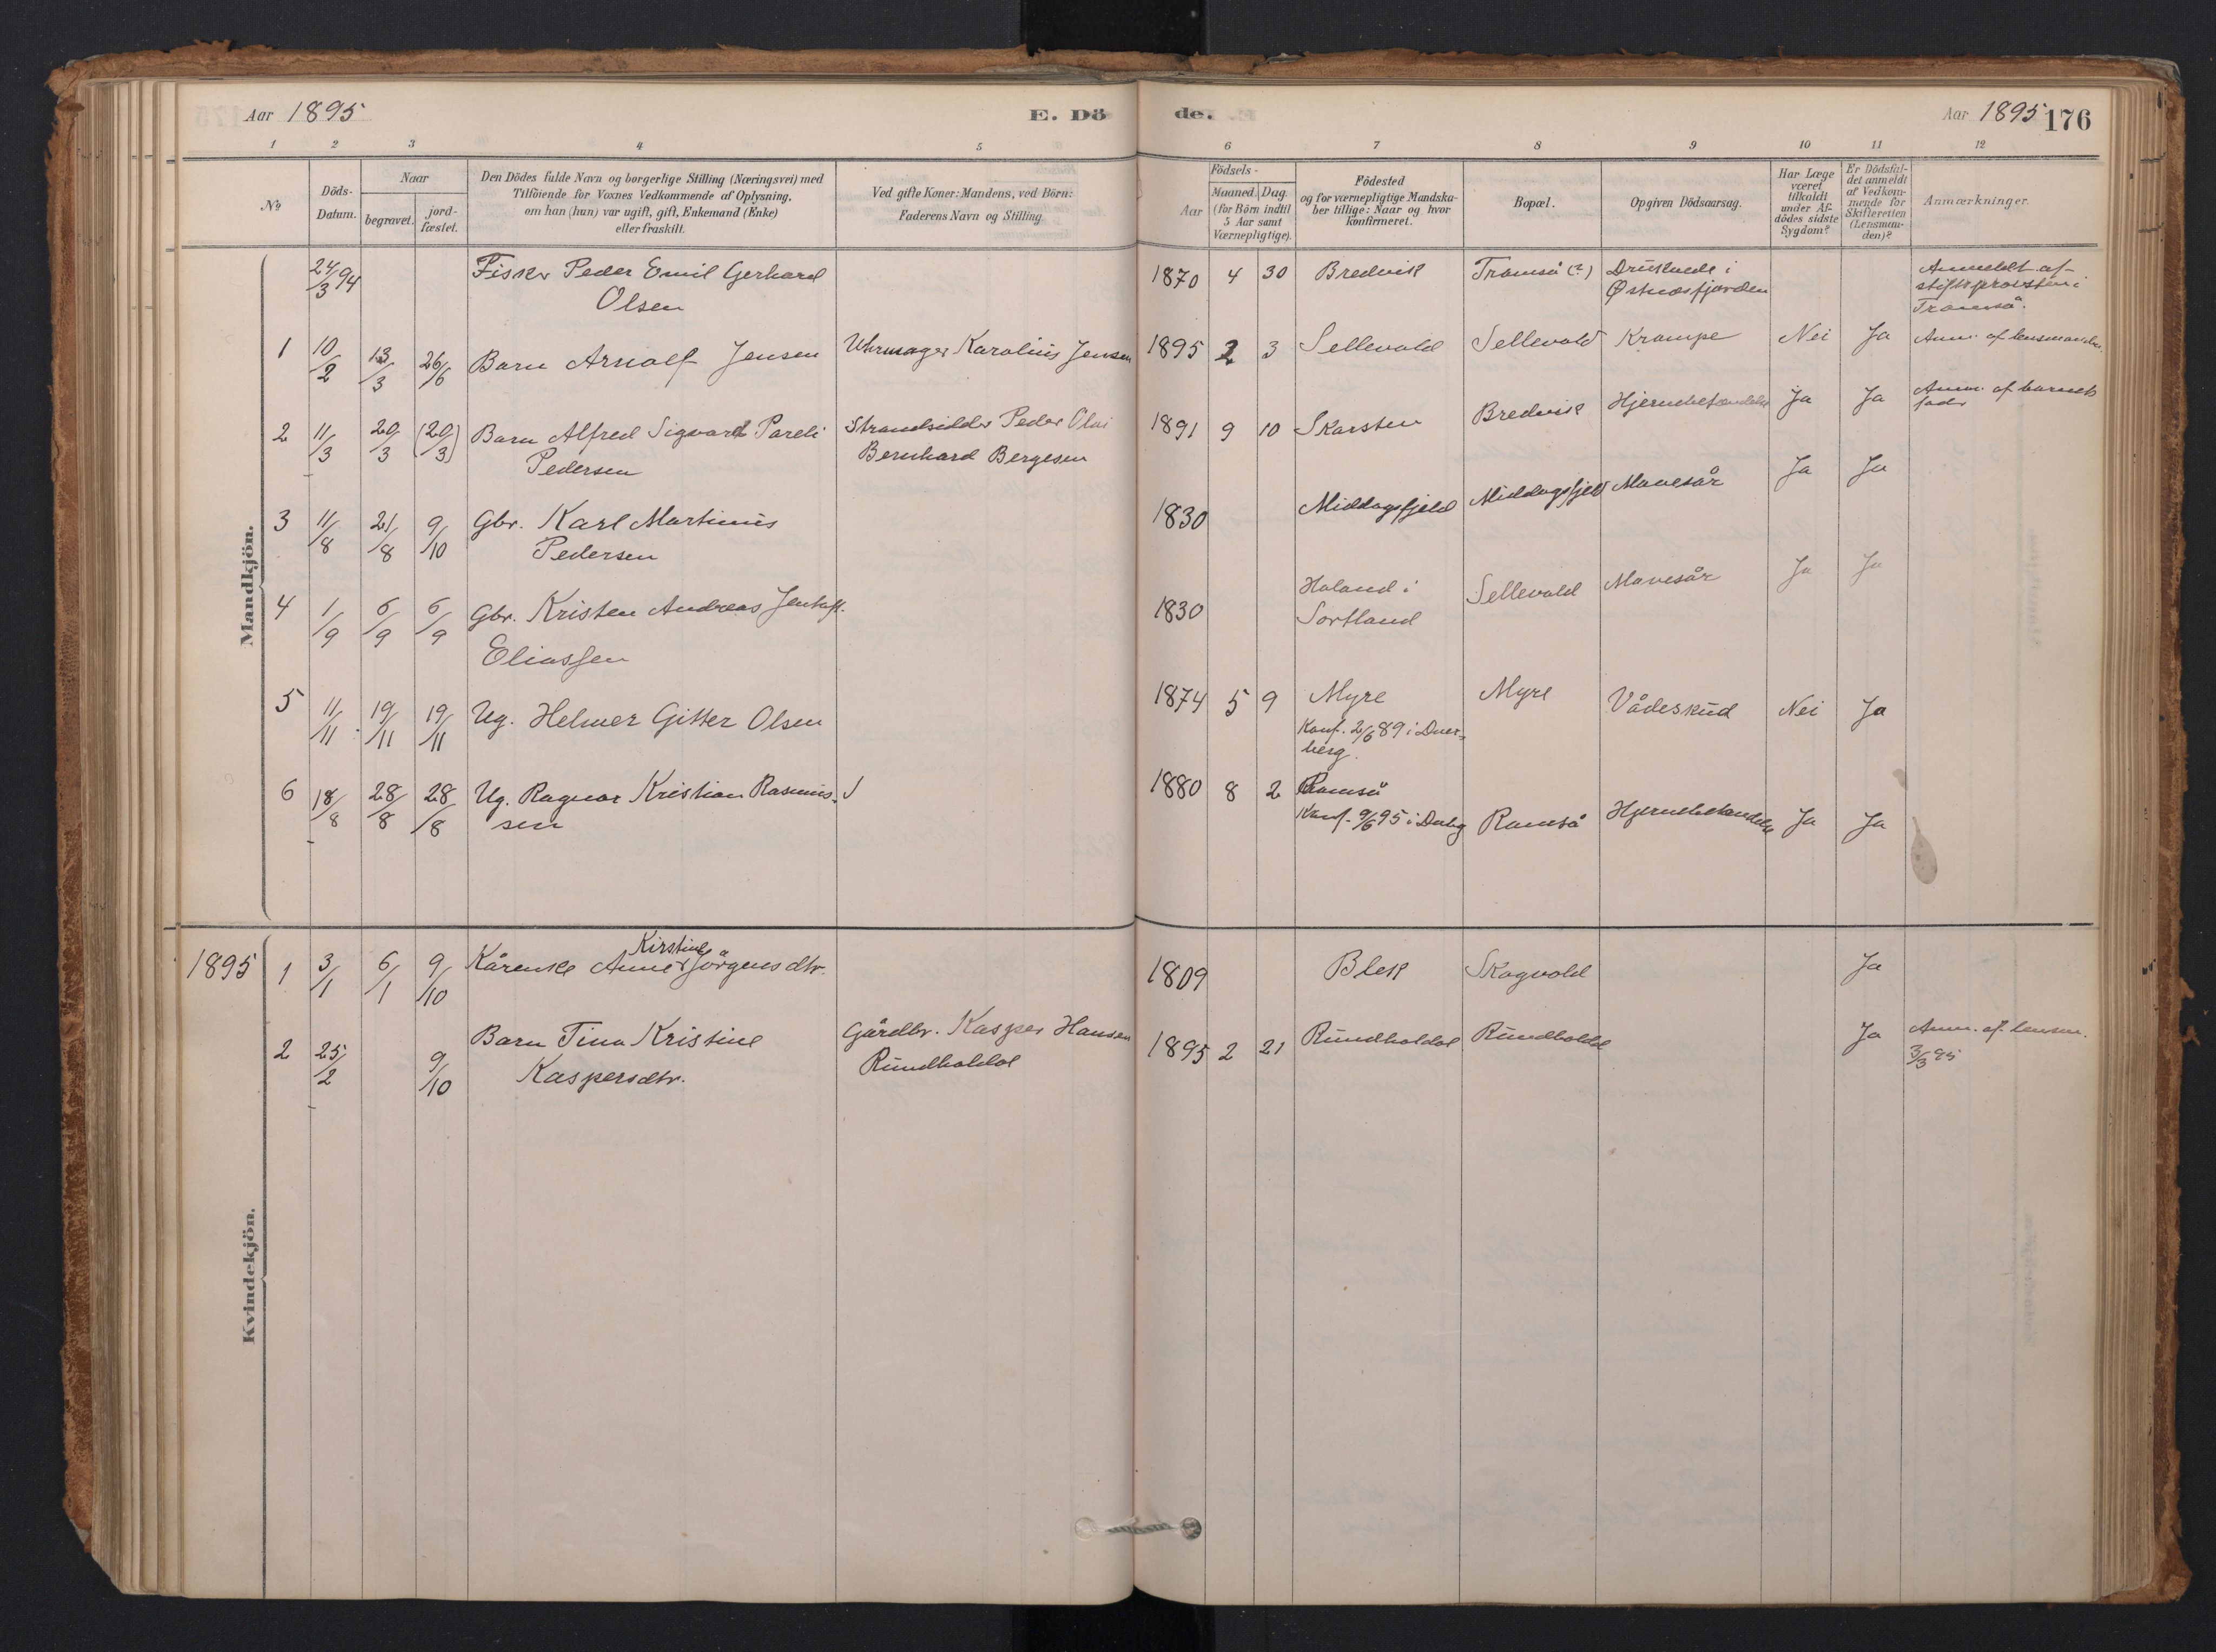 Aar 1895
E. Dö
de.
Aar 1895
176
1 2 3 4 5 6 7 8 9 10 11 12
No
Döds-
Datum.
Naar
begravet.
jord-
fæstet.
Den Dödes fulde Navn og borgerlige Stilling (Næringsvei) med
Tilföiende for Voxnes Vedkommende af Oplysning,
om han (hun) var ugift, gift, Enkemand (Enke)
eller fraskilt.
Ved gifte Koner: Mandens, ved Börn:
Faderens Navn og Stilling.
Födsels-
Aar
Maaned. Dag.
(for Börn indtil
5 Aar samt
Værnepligtige).
Födested
og for værnepligtige Mandska-
ber tillige: Naar og hvor
konfirmeret.
Bopæl.
Opgiven Dödsaarsag.
Har Læge
været
tilkaldt
under Af-
dödes sidste
Sygdom?
Er Dödsfal-
det anmeldt
af Vedkom-
mende for
Skifteretten
(Lensman-
den)?
Anmærkninger.
Mandkjön.
24/3 94 Fisker Peder Emil Gerhard 1870 4 30 Bredvik Tromsö (?) Druknede i Anmeldt af
Olsen Østnæsfjorden stiftsprovsten i
Tromsö.
1 10/2 13/3 26/6 Barn Arnolf Jensen Uhrmager Karolius Jensen 1895 2 3 Sellevold Sellevold Krampe Nei Ja Anm. af lensmanden.
2 11/3 20/3 (20/3) Barn Alfred Sigvard Pareli Strandsidder Peder Olai 1891 9 10 Skarsten Bredvik Hjernebetændelse Ja Ja Anm. af barnets
Pedersen Bernhard Bergesen fader
3 11/8 21/8 9/10 Gbr. Karl Martinus 1830 Middagsfjeld Middagsfjeld Mavesår Ja Ja
Pedersen
4 1/9 6/9 6/9 Gbr. Kristen Andreas Jentoft 1830 Holand i Sellevold Mavesår Ja Ja
Eliassen Sortland
5 11/11 19/11 19/11 Ug. Helmer Gitter Olsen 1874 5 9 Myre Myre Vådeskud Nei Ja
Konf. 2/6 89 i Dver-
berg.
6 18/8 28/8 28/8 Ug. Ragnar Kristian Rasmus- 1880 8 2 Ramså
sen Konf. 9/6 95 i Dvbg Ramså Hjernebetændelse Ja Ja
Kvindekjön.
Kirstine
1895 1 3/1 6/1 9/10 Kårenke Anne Jörgensdtr. 1809 Blek Skogvold Ja
2 25/2 9/10 Barn Tina Kristine Gårdbr. Kasper Hansen 1895 2 21 Rundholdal Rundholdal Ja Anm. af lensm.
Kaspersdtr. Rundholdal 3/3 95